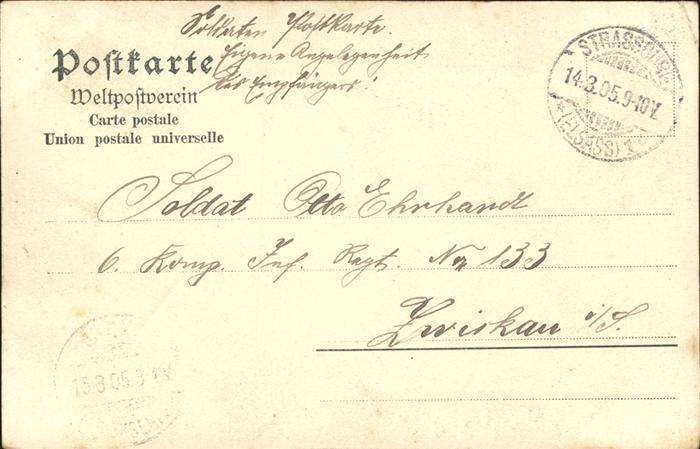 Soldaten Postkarte.
Eigene Angelegenheit
des Empfängers!
Postkarte
Weltpostverein
Carte postale
Union postale universelle
STRASSBURG
14.3.05.9-10V.
*(ELSASS)1*
Soldat Otto Ehrhardt
6. Komp. Inf. Regt. No 133
Zwickau i/S.
15.3.05.